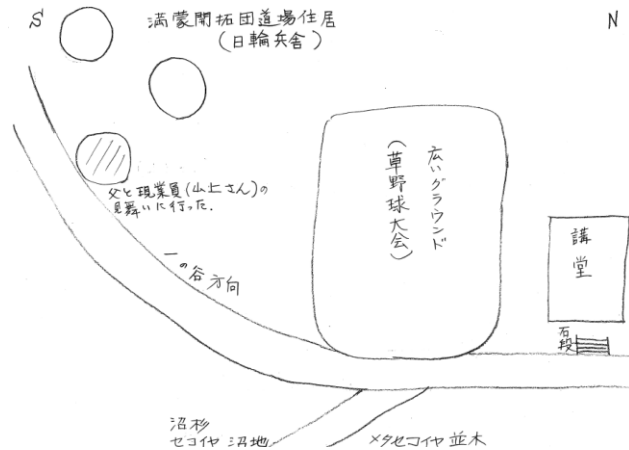 S
満蒙開拓団道場住居
(日輪兵舎)
N
父と現業員(山上さん)の
見舞いに行った.
一の谷方向
広いグラウンド
(草野球大会)
講堂
石段
沼杉
セコイヤ 沼地
メタセコイヤ 並木